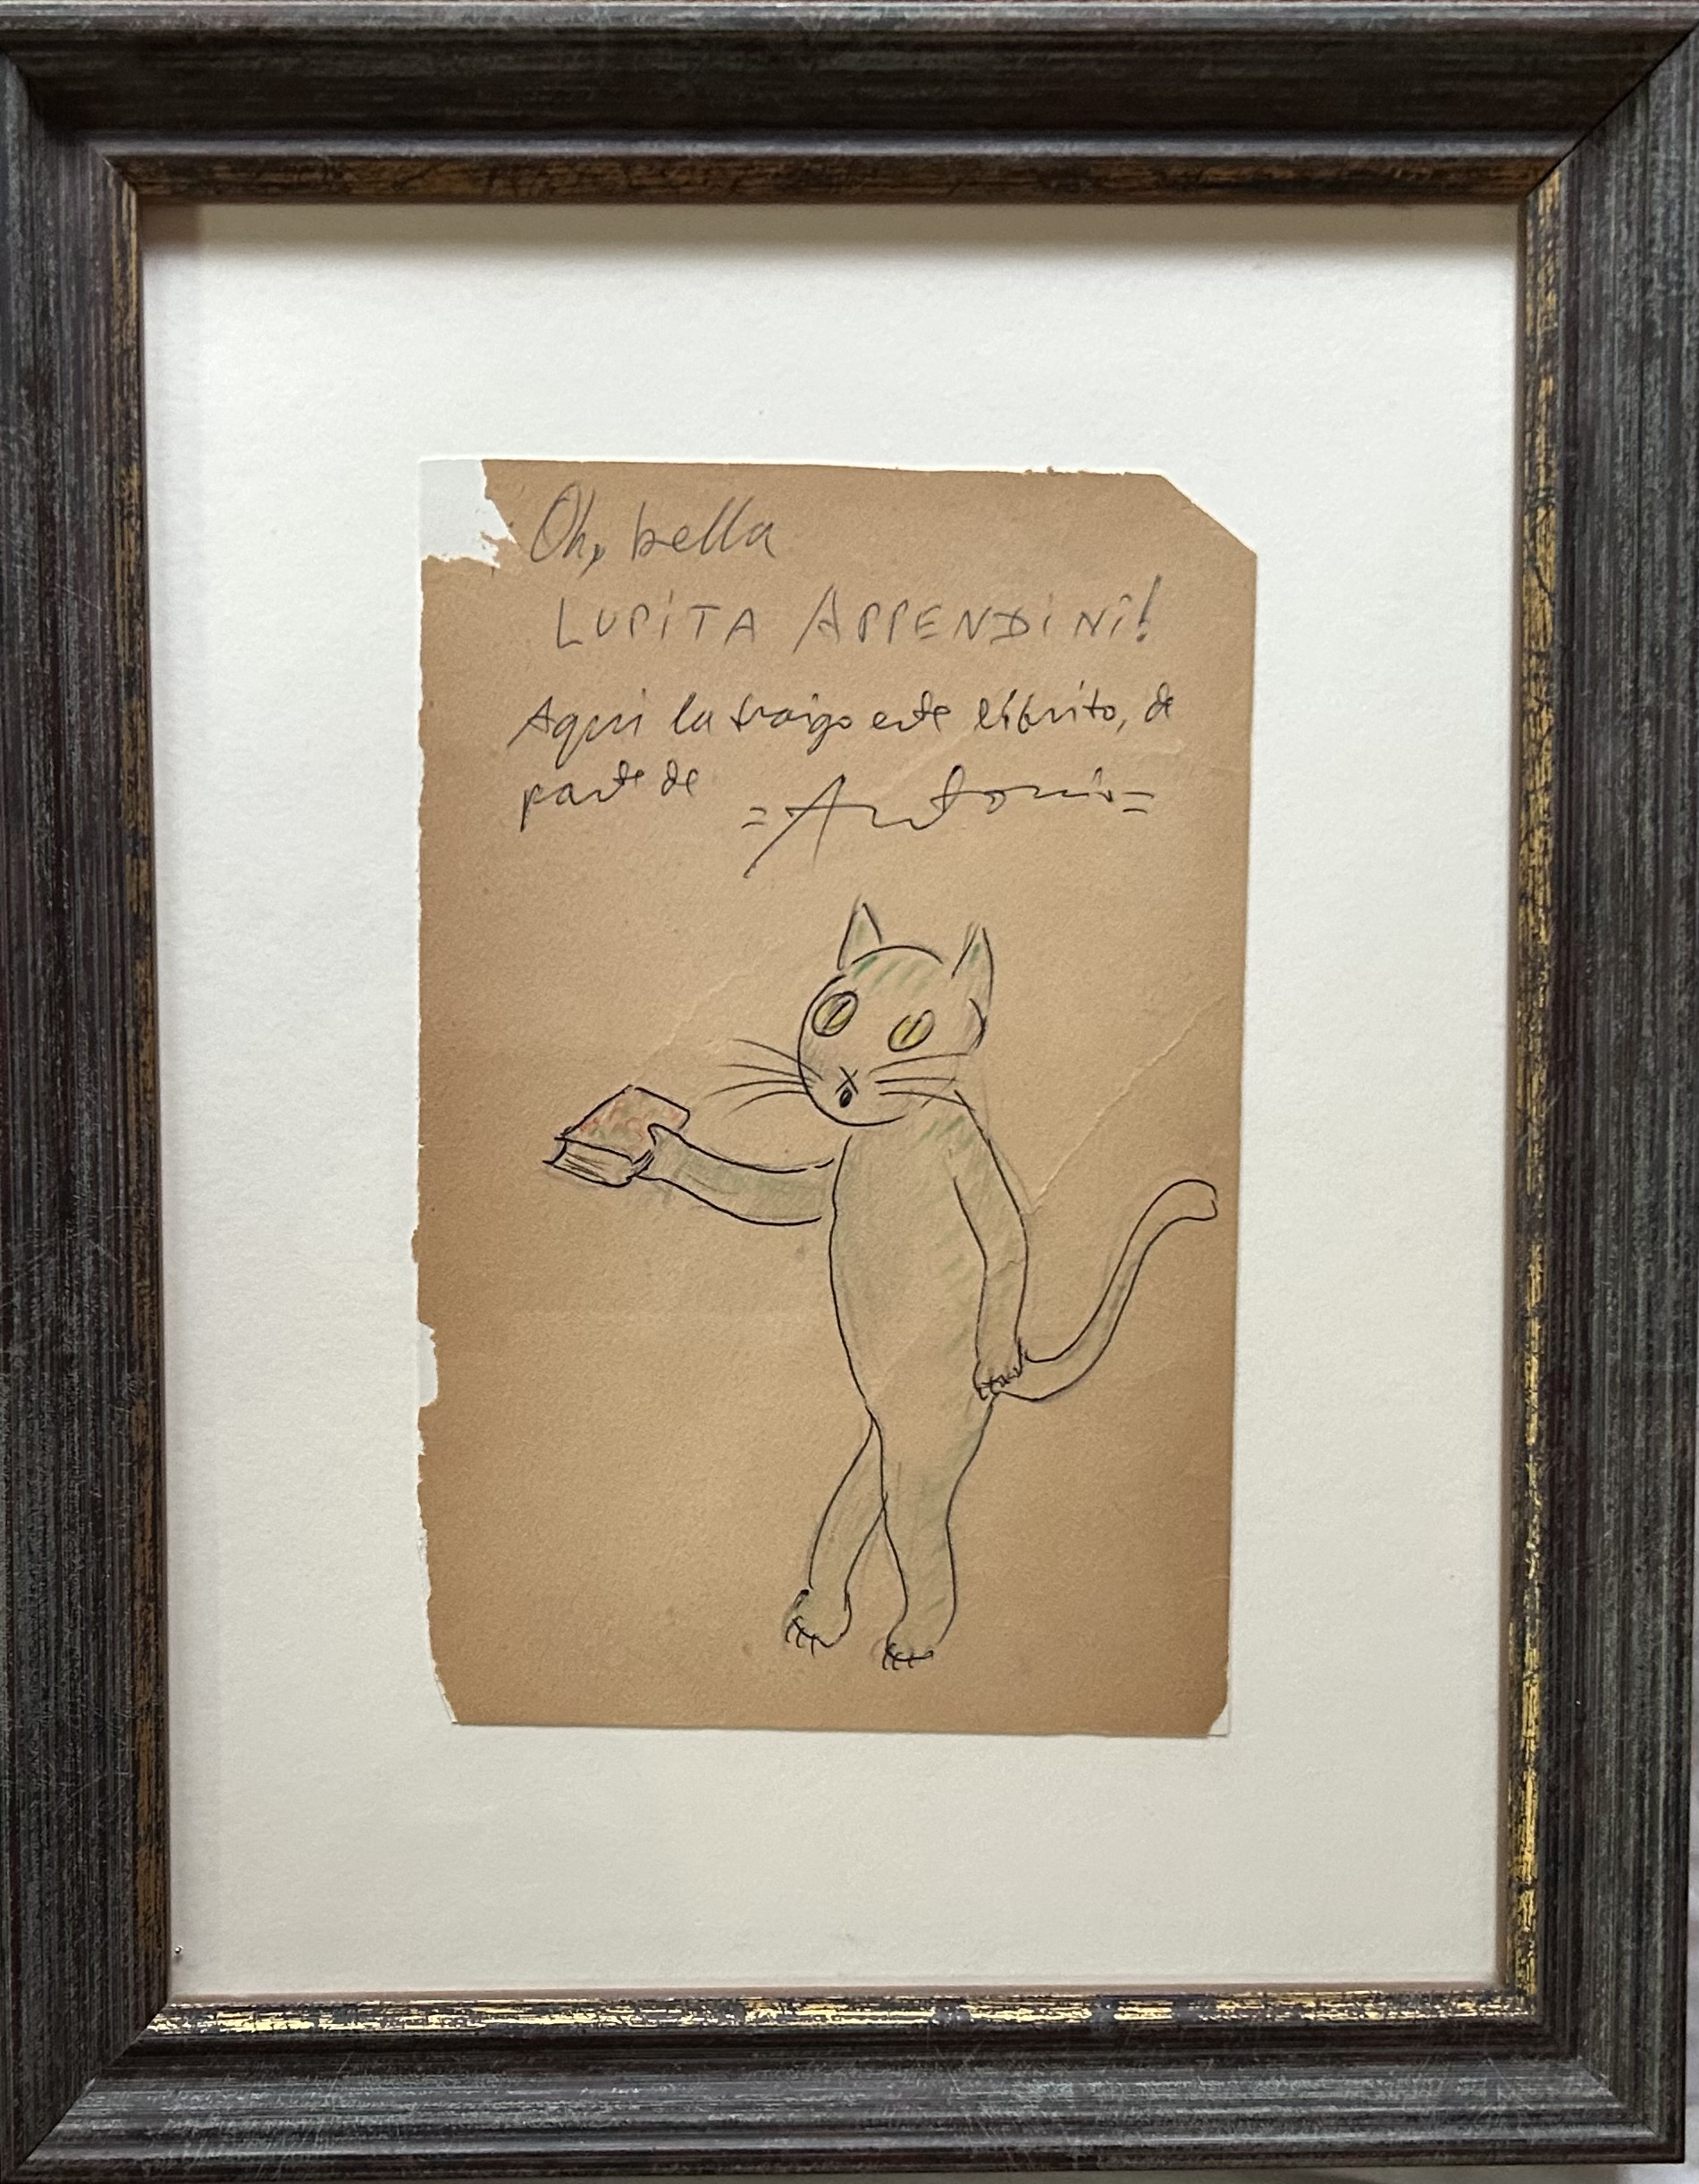 Oh, bella
LUPITA APPENDINI!
Aquí la traigo este librito, de
parte de =Antonio=